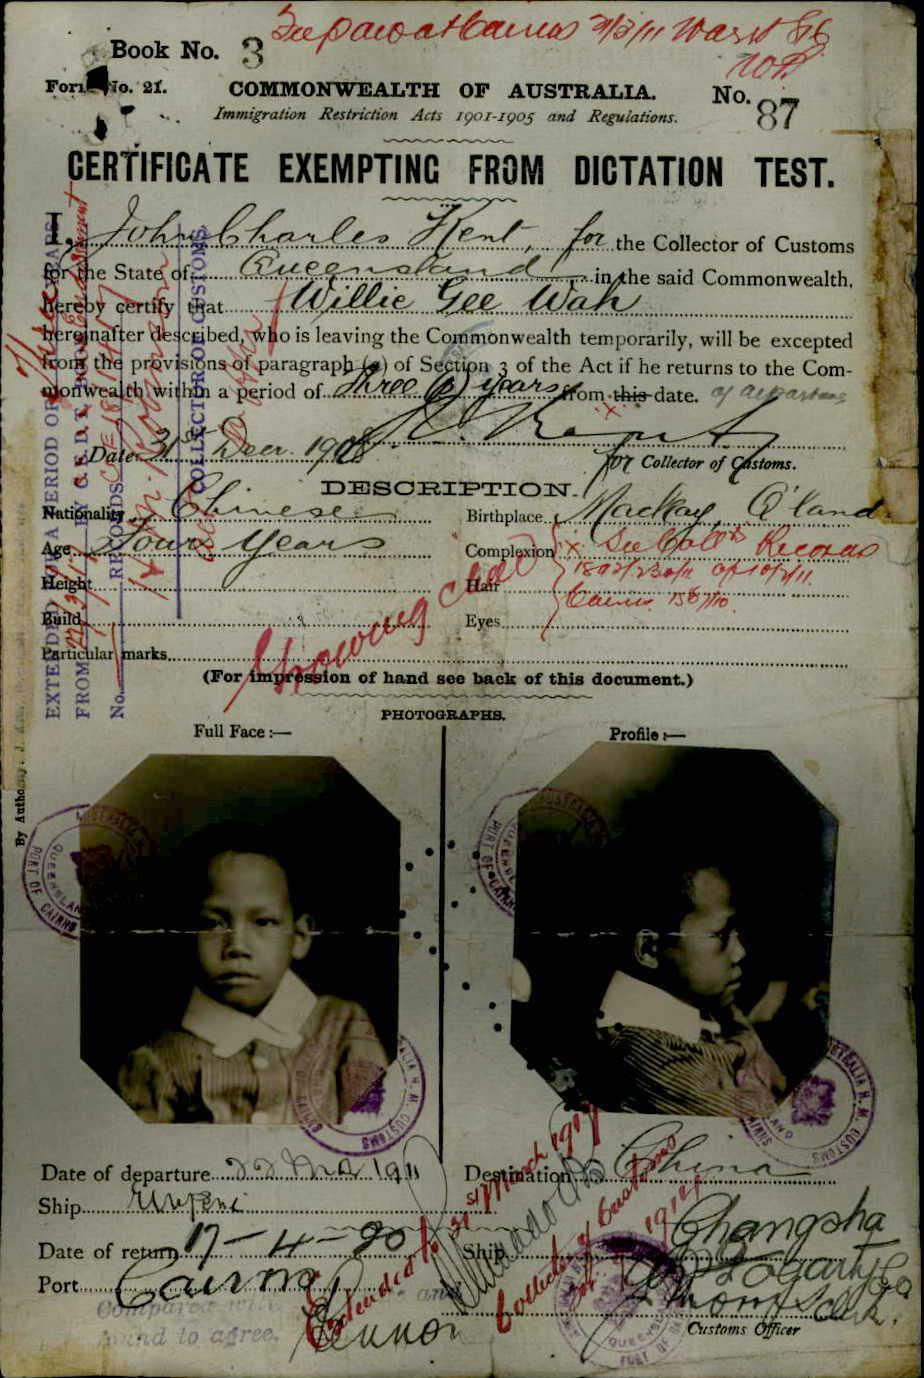 See paro at Cairns 21/3/11
Book No. 3
Form No. 21.
COMMONWEALTH OF AUSTRALIA.
No. 87
Immigration Restriction Acts 1901-1905 and Regulations.
CERTIFICATE EXEMPTING FROM DICTATION TEST.
I, John Charles Kent, for the Collector of Customs
for the State of Queensland in the said Commonwealth,
hereby certify that Willie Gee Wah
hereinafter described, who is leaving the Commonwealth temporarily, will be excepted
from the provisions of paragraph (a) of Section 3 of the Act if he returns to the Com-
monwealth within a period of three (3) years from this date. of departure
Date 31st Decr. 1908
for Collector of Customs.
DESCRIPTION.
Nationality Chinese
Birthplace Mackay, Q'land
Age Four years
Complexion x See Records
Height
Hair
Cairns
Build
Eyes
Particular marks
growing child
(For impression of hand see back of this document.)
PHOTOGRAPHS.
Full Face:—
Profile:—
EXTENDED FOR A PERIOD OF YEARS
FROM BY C.E.D.T.
No. RECORDS
COLLECTOR OF CUSTOMS
By Authority: J.
AUSTRALIA
QUEENSLAND
PORT OF CAIRNS
AUSTRALIA H. M. CUSTOMS
CAIRNS
Date of departure 22 Mar 1911
Destination China
Ship
Date of return 17-4-20
Ship Changsha
Port Cairns
Extended to 31st March 1917
Collector of Customs
Compared with
found to agree.
Customs Officer